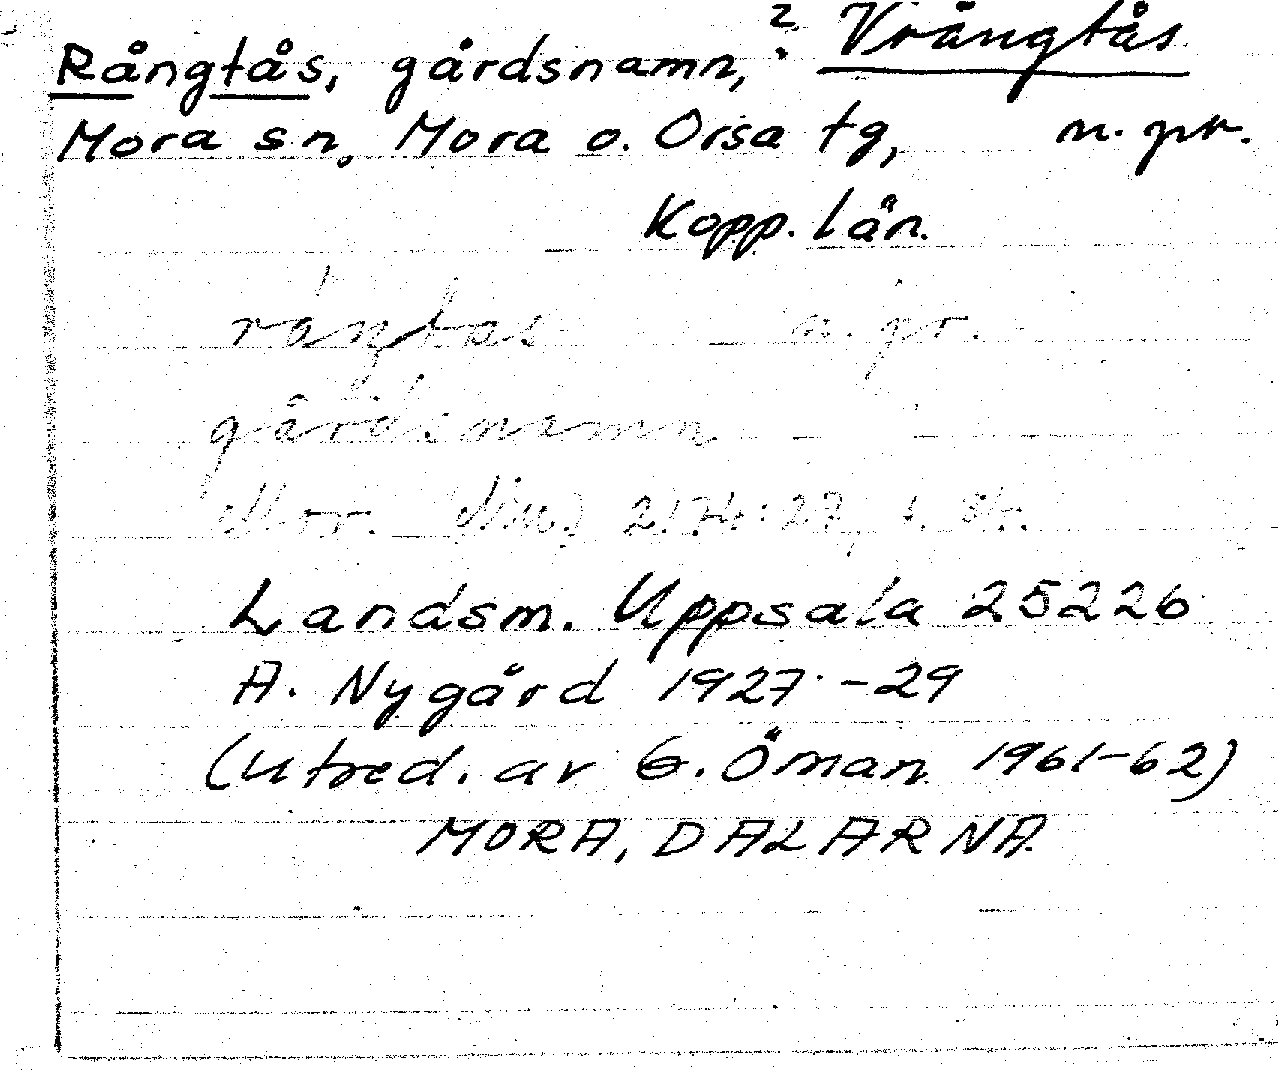 Rångtås, gårdsnamn, ? Vrångtås
Mora sn, Mora o. Orsa tg, n. pr.
Kopp. län.
rángtas n. pr.
gårdsnamn
Mor.
Landsm. Uppsala 25226
A. Nygård 1927-29
(Utred. av G. Öman 1961-62)
MORA, DALARNA